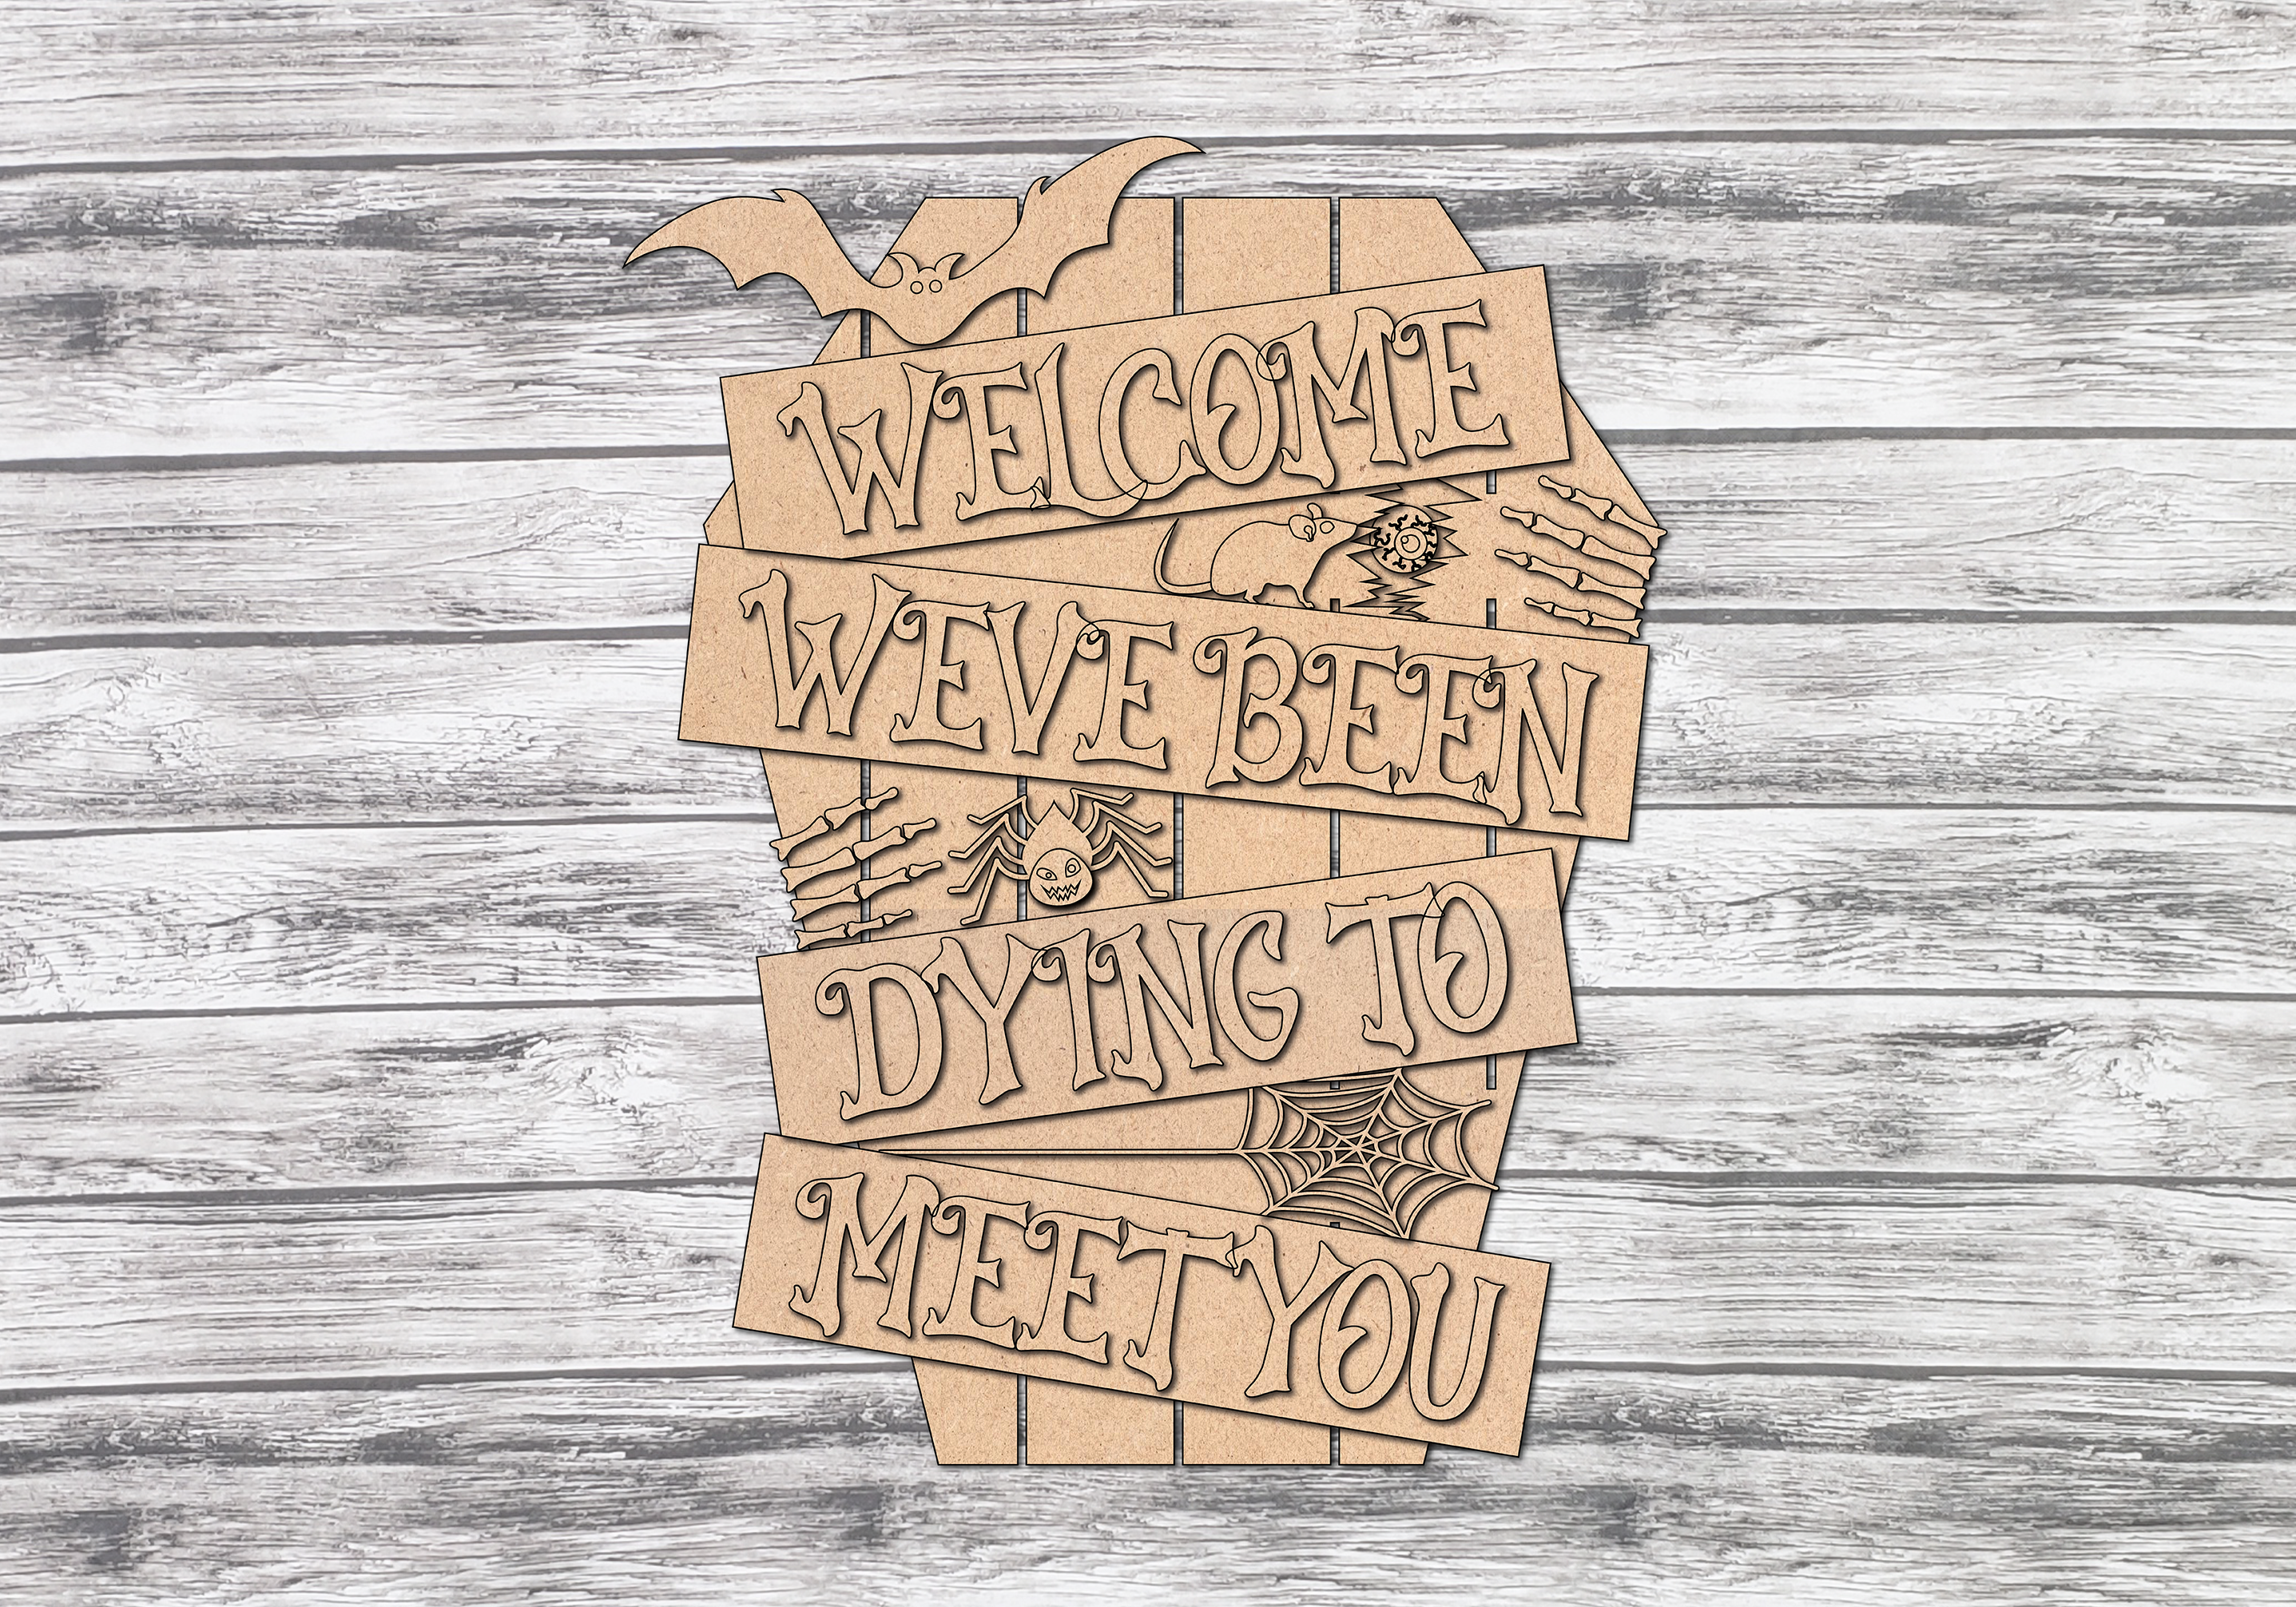 WELCOME
WEVE BEEN
DYING TO
MEET YOU